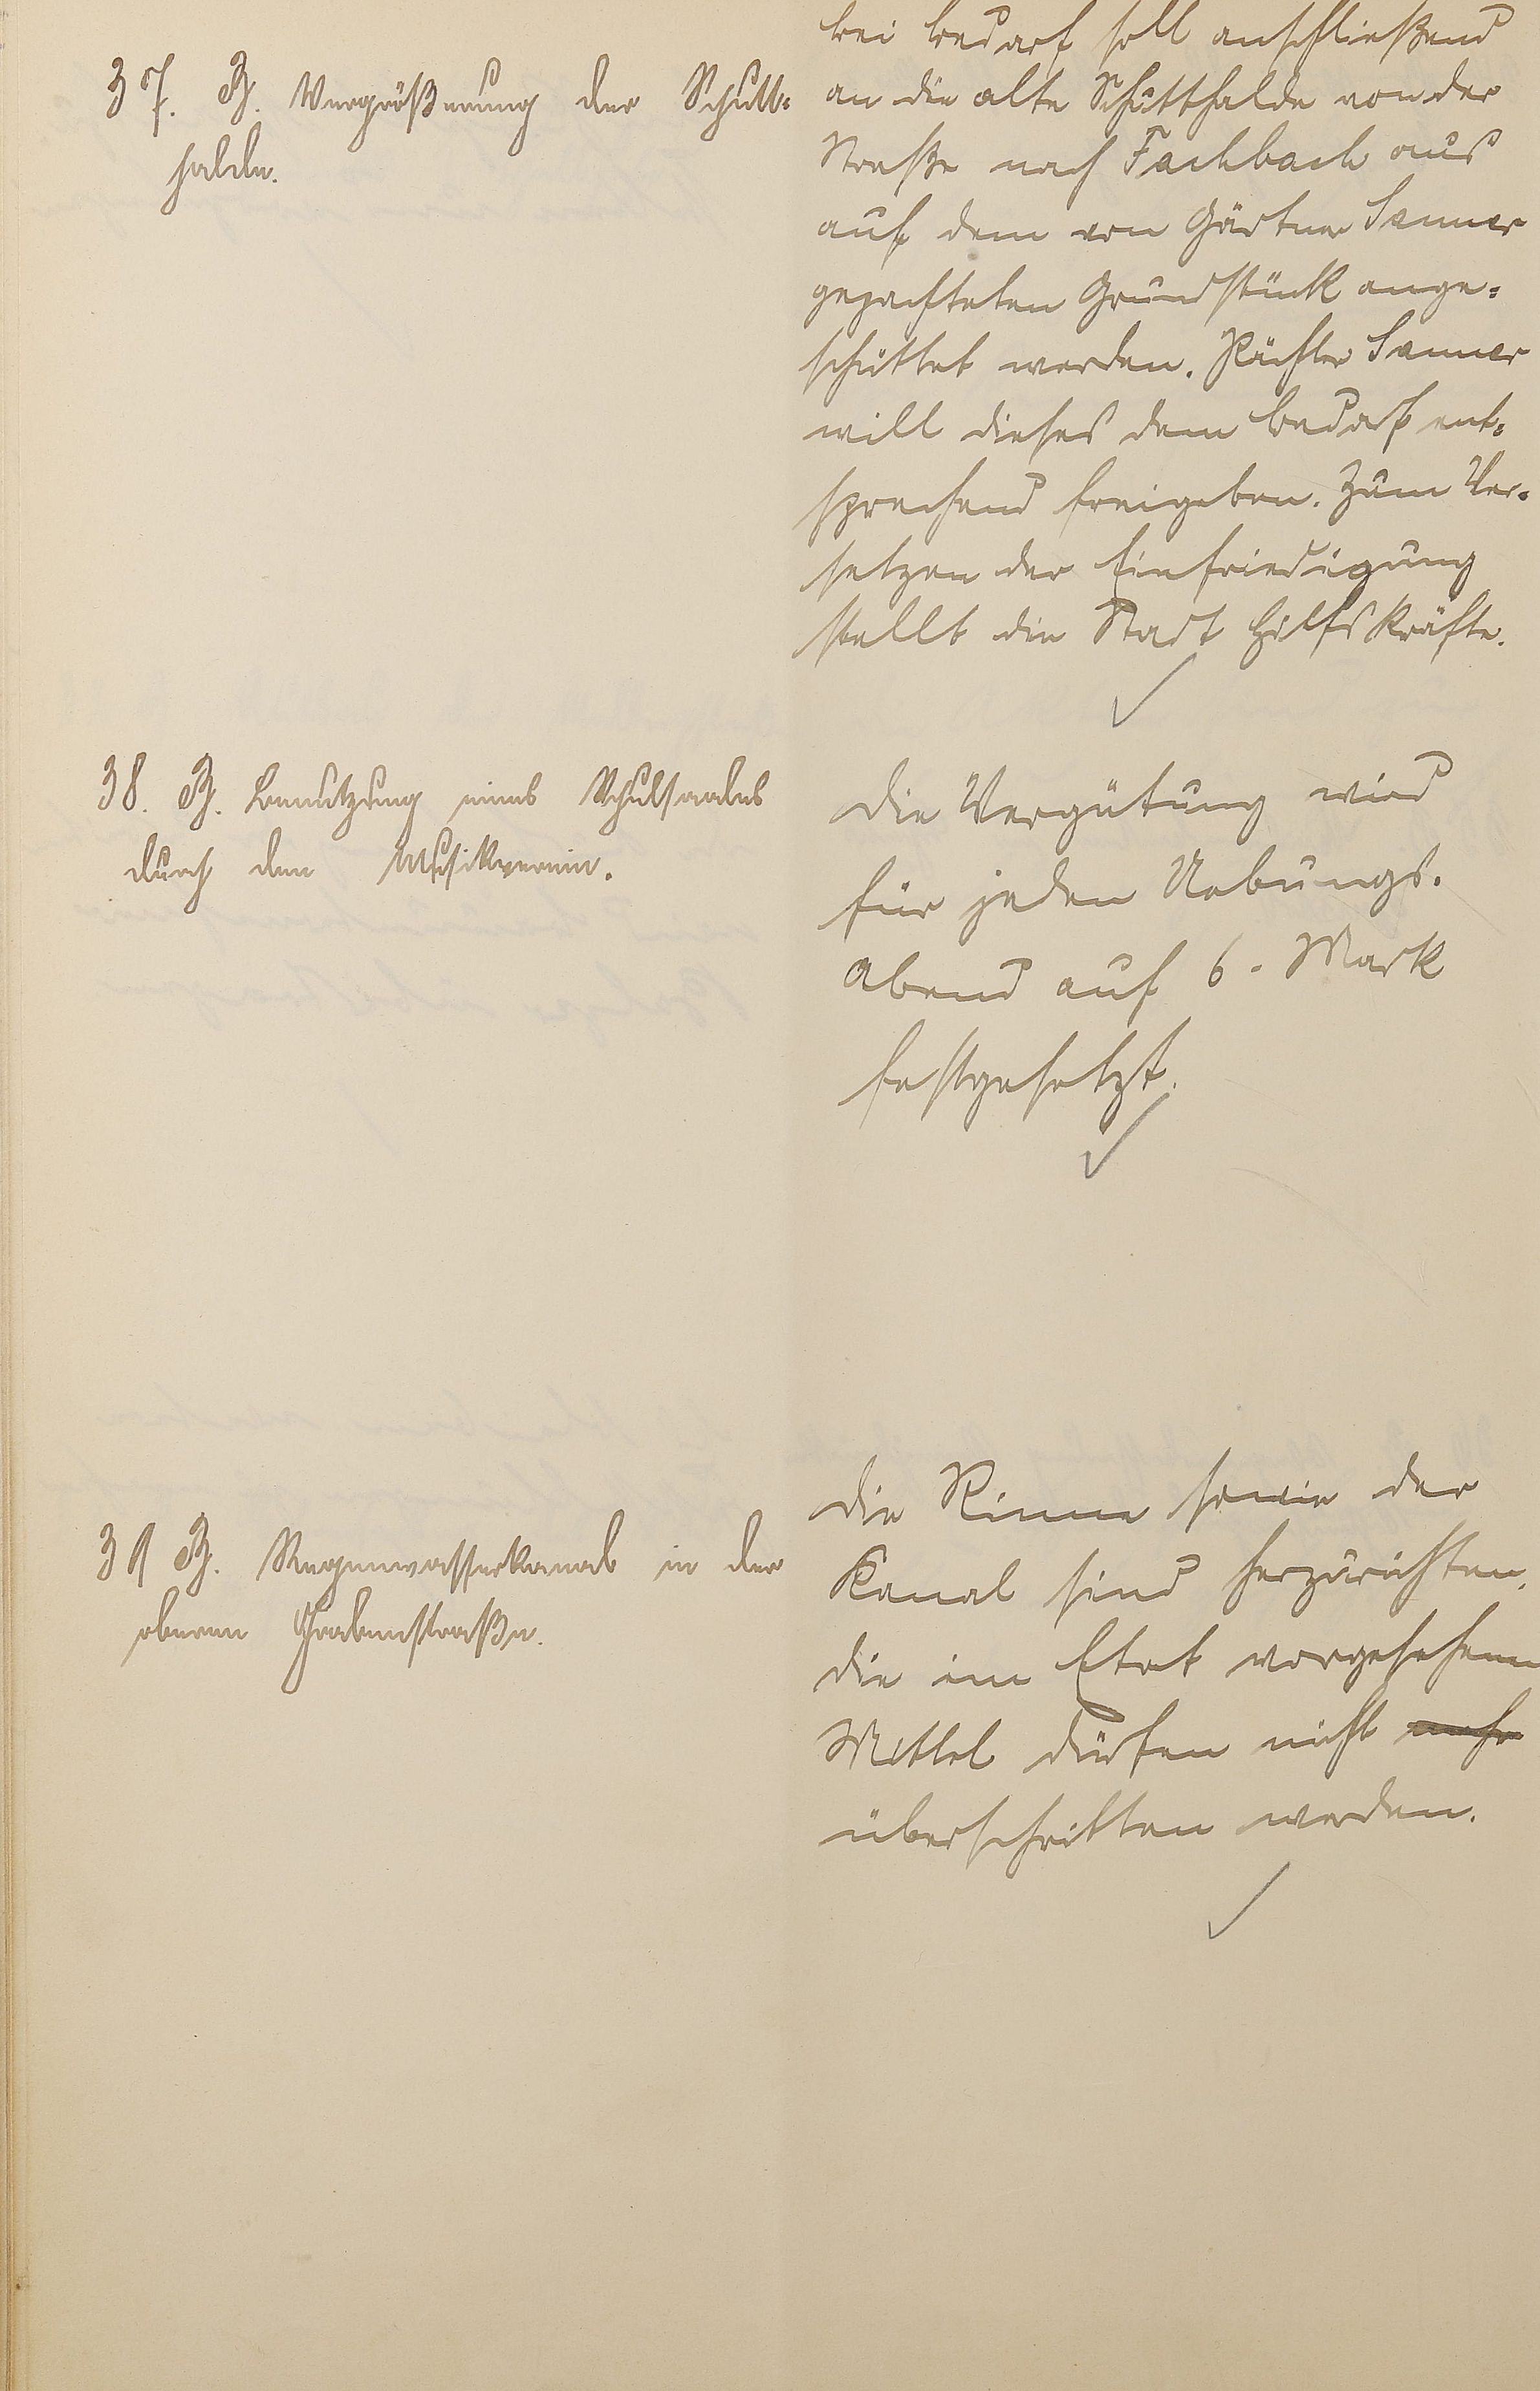 37. B. Vergrößerung der Schutt-
halde.
bei Bedarf soll anschließend
an die alte Schutthalde von der
Straße nach Fachbach aus
auf dem von Gärtner Sanner
gepachteten Grundstück ange-
schüttet werden. Pächter Sanner
will dieses dem Bedarf ent-
sprechend freigeben. Zum Ver-
setzen der Einfriedigung
stellt die Stadt Hilfskräfte.
38. B. Benutzung eines Schulsaales
durch den Musikverein.
Die Vergütung wird
für jeden Uebungs-
abend auf 6.- Mark
festgesetzt.
39 B. Regenwasserkanal in der
oberen Grabenstraße.
Die Rinne sowie der
Kanal sind herzurichten,
die im Etat vorgesehenen
Mittel dürfen nicht mehr
überschritten werden.